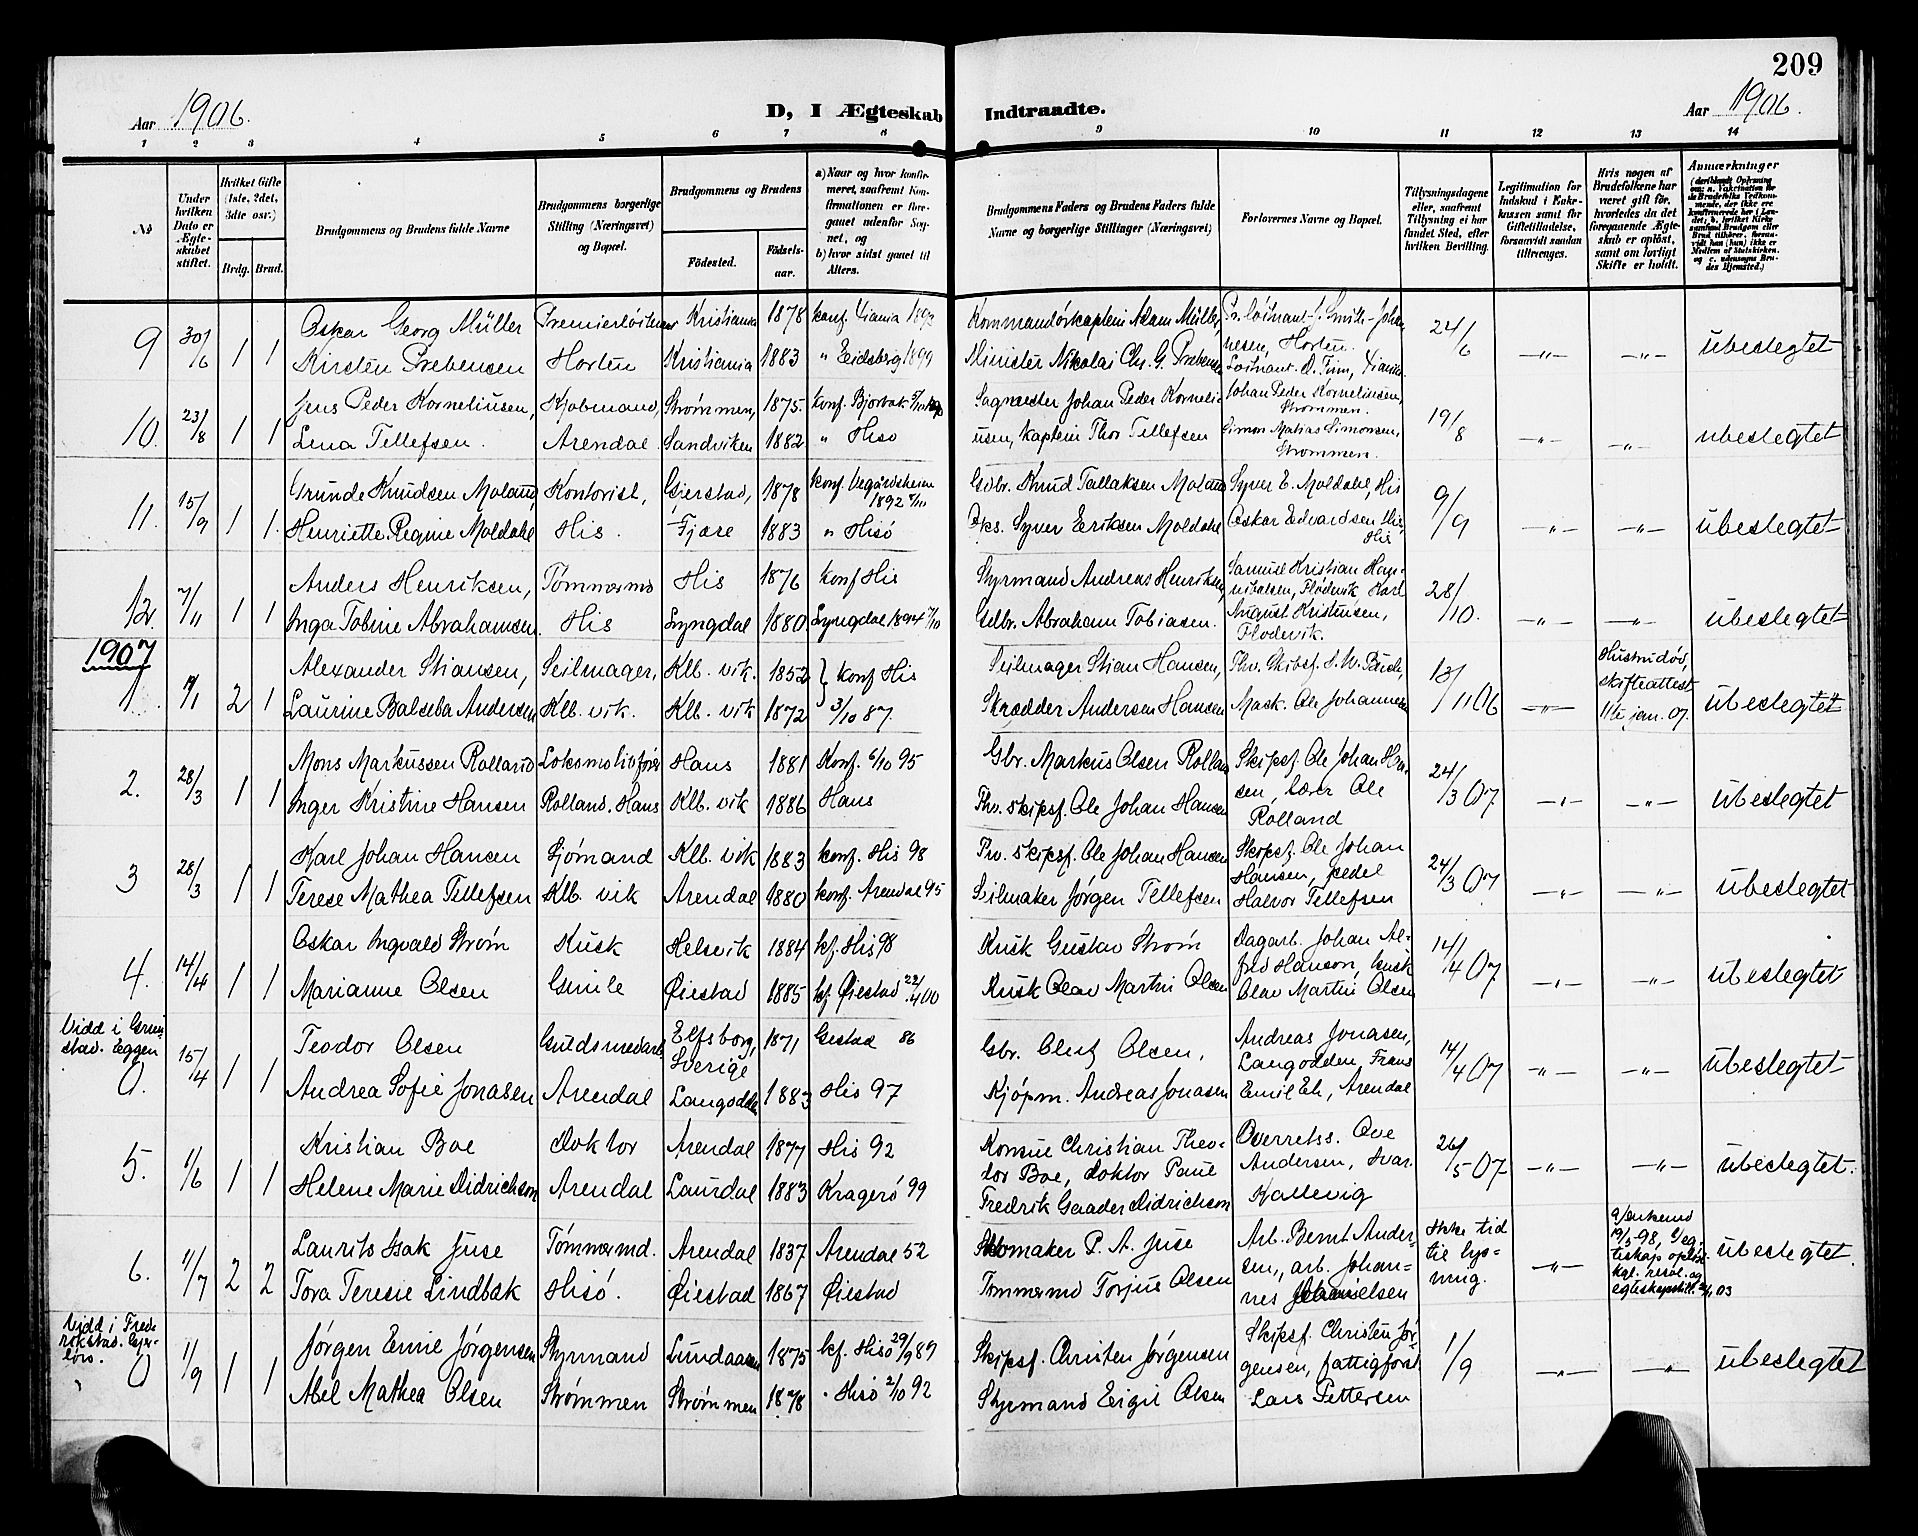 209
Aar 1906.
D, I Ægteskab Indtraadte.
Aar 1906.
1 2 3 4 5 6 7 8 9 10 11 12 13 14
No
Under hvilken Dato er Ægteskabet stiftet.
Hvilket Gifte (1ste, 2det, 3die osv.)
Brdg. Brud.
Brudgommens og Brudens fulde Navne
Brudgommens borgerlige Stilling (Næringsvei) og Bopæl.
Brudgommens og Brudens
Fødested.
Fødselsaar.
a) Naar og hvor konfirmeret, saafremt Konfirmationen er foregaaet udenfor Sognet, og
b) hvor sidst gaaet til Alters.
Brudgommens Faders og Brudens Faders fulde Navne og borgerlige Stillinger (Næringsvei)
Forlovernes Navne og Bopæl.
Tillysningsdagene eller, saafremt Tillysning ei har fundet Sted, efter hvilken Bevilling.
Legitimation for Indskud i Enkekassen samt for Giftetilladelse, forsaavidt saadan tiltrænges.
Hvis nogen af Brudefolkene har været gift før, hvorledes da det foregaaende Ægteskab er opløst, samt om lovligt Skifte er holdt.
Anmærkninger
9 30/6 1 1
Oskar Georg Müller Premierløitnant Kristiania 1878 konf. Xiania 1893 Kommandörkaptein Adam Müller, Pr. löitnant J. Smith-Johan
Kirsten Prebensen Horten Kristiania 1883 " Eidsberg 1899 Minister Nikolai Chr. G. Prebensen nesen, Horten. 24/6 —"— —"— ubeslegtet
Löitnant O. Finn, Xiania
10. 23/8 1 1
Jens Peder Korneliusen, Kjøbmand, Strømmen, 1875. konf. Johan Peder Korneli- Johan Peder Korneliusen, Strømmen.
Lena Tellefsen. Arendal Sandviken 1882 " Hisö usen, Kaptein Thor Tellefsen Simon Matias Simonsen, Strømmen. 19/8 —"— —"— ubeslegtet
11. 15/9 1 1.
Grunde Knudsen Moland, Kontorist, Gjerstad, 1878 konf. Vegårdsheien 1892 Gdbr. Knud Tallaksen Moland Syver E. Moldahl, His
Henriette Regine Moldahl His. Fjære 1883 " Hisö Syver Eriksen Moldahl Oskar Edvardsen His, His 9/9 —"— —"— ubeslegtet
12. 7/11 1 1
Anders Henriksen, Tømmermd His 1876 konf His Styrmand Andreas Henriksen, Samuel Kristian Han-
Inga Tobine Abrahamsen. His Lyngdal 1880 Lyngdal 1894 Gdbr. Abraham Tobiasen. August Kristensen, Flødevik. 28/10. —"— —"— ubeslegtet
1907
1 1/1 2 1
Alexander Stiansen, Seilmager, Klb. vik. 1852 } konf His Seilmager Stian Hansen, Fhv. Skibsf. J. W. 13/11 06 —"— Hustru död, skifteattest 11te jan. 07. ubeslegtet
Laurine Balseba Andersen Klb. vik. Klb. vik 1872 3/10 87. Skrædder Andersen Hansen Mask. Ole Johannesen
2. 28/3 1 1
Mons Markussen Rolland Lokomotivfører Hans 1881 Konf. 6/10 95 Gbr. Markus Olsen Rolland Skipsf. Ole Johan Han-
Inger Kristine Hansen Rolland. Hans Klb. vik 1886 Hans Fhv. skipsf. Ole Johan Hansen sen, lærer Ole Rolland 24/3 07 —"— —"— ubeslegtet
3 28/3 1 1
Karl Johan Hansen Sjömand Klb. vik 1883 konf. His 98 Fhv. skipsf. Ole Johan Hansen Skipsf. Ole Johan
Terese Mathea Tellefsen Klb. vik Arendal 1880 konf. Arendal 95 Seilmaker Jørgen Tellefsen Hansen, pedel Halvor Tellefsen 24/3 07 —"— —"— ubeslegtet
4. 14/4 1 1
Oskar Ingvald Strøm Kusk Helsevik 1884 kf. His 98 Kusk Gustav Strøm Dagarb. Johan Al-
Marianne Olsen Øiestad 1885 kf. Øiestad 23/4 00 Kusk Olav Martin Olsen fred Hanson, kusk Olav Martin Olsen 14/4 07 —"— —"— ubeslegtet
Vidd i Grimstad. Eggen
0. 15/4 1 1
Teodor Olsen Guldsmedarb. Elfsborg, Sverige 1871 86 Gbr. Oluf Olsen, Andreas Jonasen,
Andrea Sofie Jonasen Arendal Langodden 1883 His 97 Kjøpm. Andreas Jonasen Langodden, Frans Emil Ek, Arendal 14/4 07 —"— —"— ubeslegtet
5. 1/6 1 1
Kristian Boe Doktor Arendal 1877 His 92 Konsul Christian Theo- Overretss. Ove
Helene Marie Didrichson Arendal Laurdal 1883 Kragerö 99 dor Boe, doktor Paul Andersen, Ivar
Fredrik Gaarder Didrichson Kallevig 26/5 07 —"— —"— ubeslegtet.
6. 11/7 2 2
Laurits Isak Juse Tømmermd. Arendal 1837 Arendal 52 Skomaker P. A. Juse Arb. Bernt Ander-
Tora Teresie Lindbak Hisö. Øiestad 1867 Øiestad Tømmermd Torjus Olsen sen, arb. Johan- nes Ikke tid til lysning. —"— enkemd 19/5-98, egteskap opløst kgl. resol. og ubeslegtet.
Vidd i Frederikstad.
0 1/9 1 1
Jørgen Emil Jørgensen Styrmand Lundaasen 1875 kf. Hisö 29/9 89 Skipsf. Christen Jørgensen Skipsf. Christen Jør-
Abel Mathea Olsen Strømmen Strømmen 1878 " Hisö 2/10 92 Styrmand Eigil Olsen gensen, fattigforst Lars Pettersen 1/9 —"— —"— ubeslegtet